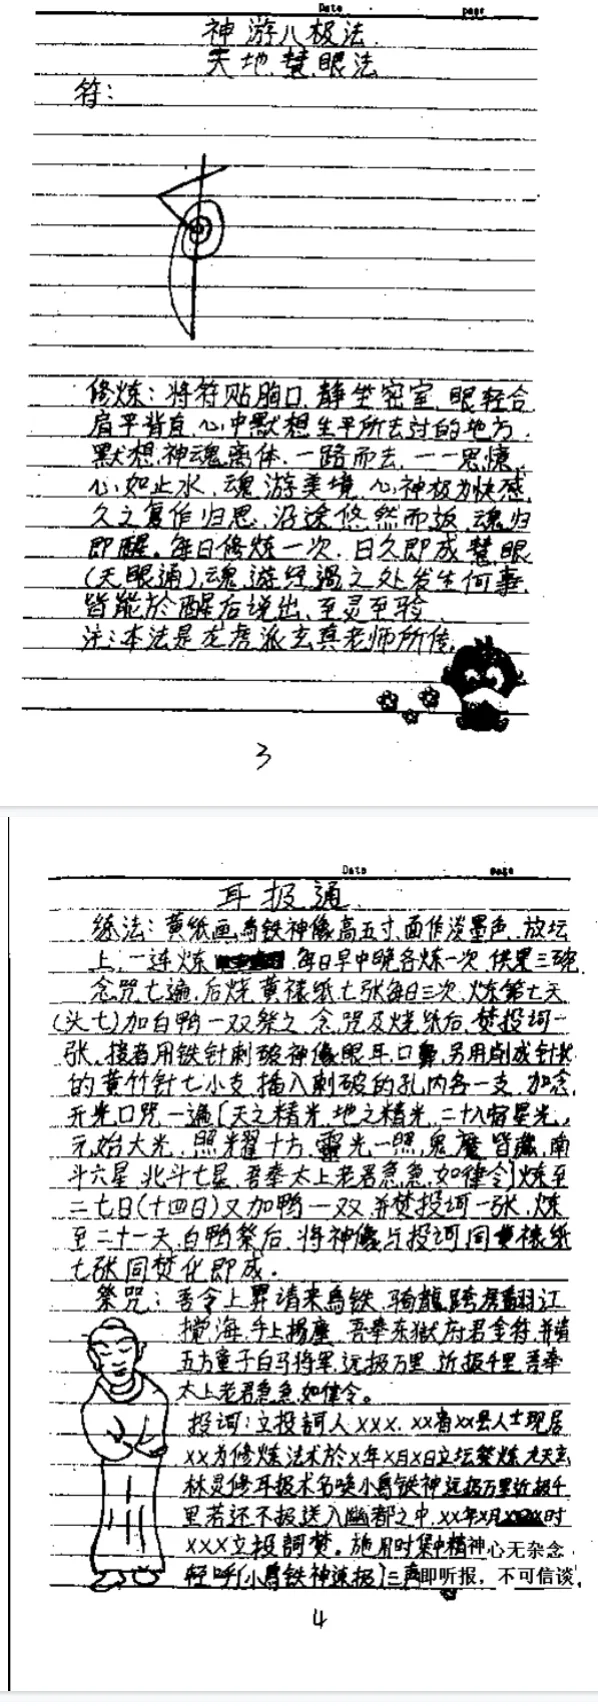 Date page
神游八极法
天地慧眼法
符：
修炼：将符贴胸口，静坐密室，眼轻合，
肩平背直，心中默想生平所去过的地方，
默想神魂离体，一路而去，一一思忆，
心如止水，魂游美境，心神极为快感，
久之复作归思，沿途悠然而返，魂归
即醒。每日修炼一次，日久即成慧眼
(天眼通)，魂遊经过之处发生何事，
皆能於醒后说出，至灵至验
注：本法是龙虎派玄真老师所传，
3
Date page
耳报通
炼法：黄纸画乌铁神像高五寸，面作淡墨色，放坛
上，一连炼 每日早中晚各炼一次，供果三碗，
念咒七遍，后烧黄裱纸七张每日三次，炼第七天
(头七)加白鸭一双祭之，念咒及烧纸后，焚投词一
张，接者用铁针刺破神像眼耳口鼻，另用削成针状
的黄竹针七小支，插入刺破的孔内各一支，加念
开光口咒一遍[天之精光，地之精光，二十八宿星光，
元始大光，照耀十方，靈光一照，鬼魔皆藏，南
斗六星，北斗七星，吾奉太上老君急急如律令]炼至
二七日(十四日)又加鸭一双，并焚投词一张，炼
至二十一天，白鸭祭后，将神像与投词，同黄裱纸
七张同焚化即成。
祭咒：吾令上界请来乌铁，骑龍跨虎翻江
搅海，手上楊塵，吾奉东嶽府君金符，并请
五方童子白马将军，远报万里，近报千里，吾奉
太上老君急急如律令。
投词：立投詞人xxx，xx省xx县人士现居
xx为修炼法术於x年x月x日立坛祭炼，尤天玄
林灵修耳报术名唤小乌铁神远报万里近报千
里若还不报送入幽都之中，xx年x月 xx时
xxx立投詞焚。施用时集中精神心无杂念，
轻呼[小乌铁神速报]三声即听报，不可信谈，
4